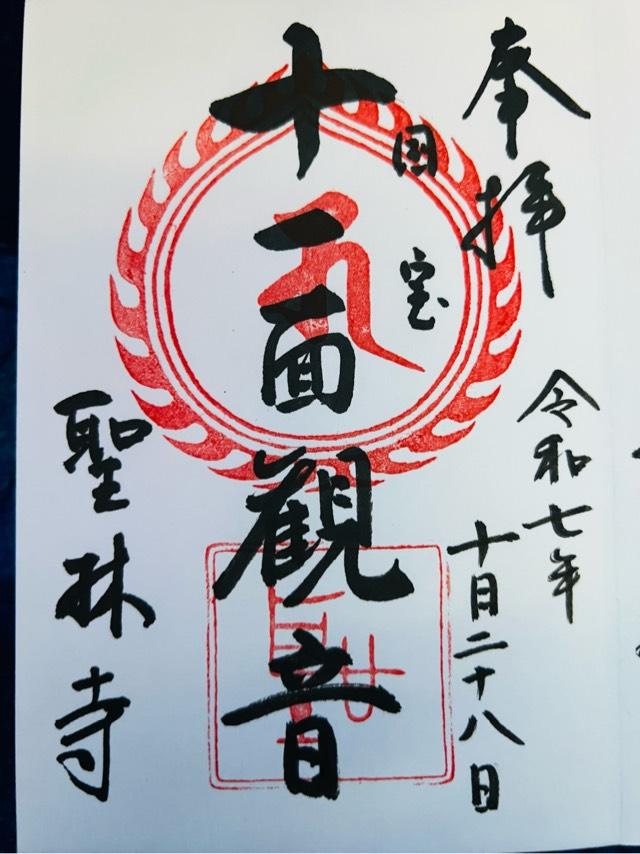 奉拝
令和七年
十月二十八日
国宝
十一面観音
聖林寺